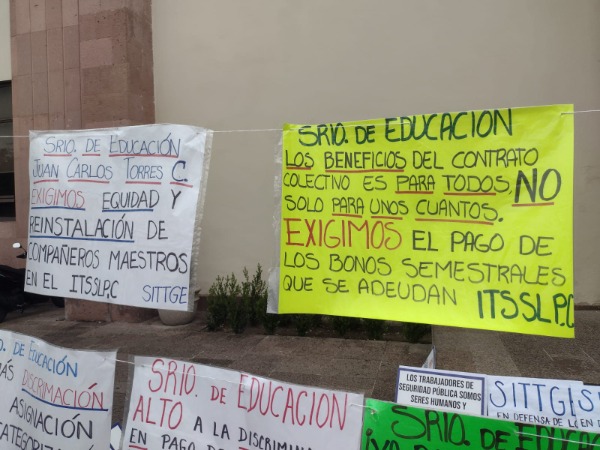 SRIO. DE EDUCACIÓN
JUAN CARLOS TORRES C.
EXIGIMOS EQUIDAD Y
REINSTALACIÓN DE
COMPAÑEROS MAESTROS
EN EL ITSSLP,C SITTGE
SRIO. DE EDUCACION
LOS BENEFICIOS DEL CONTRATO
COLECTIVO ES PARA TODOS, NO
SOLO PARA UNOS CUANTOS.
EXIGIMOS EL PAGO DE
LOS BONOS SEMESTRALES
QUE SE ADEUDAN ITSSLP,C
O. DE EDUCACIÓN
DISCRIMINACIÓN
ASIGNACIÓN
SRIO. DE EDUCACIÓN
ALTO A LA
EN PAGO DE
LOS TRABAJADORES DE
SEGURIDAD PÚBLICA SOMOS
SERES HUMANOS Y
SITTGE
EN DEFENSA DE
SRIO. DE